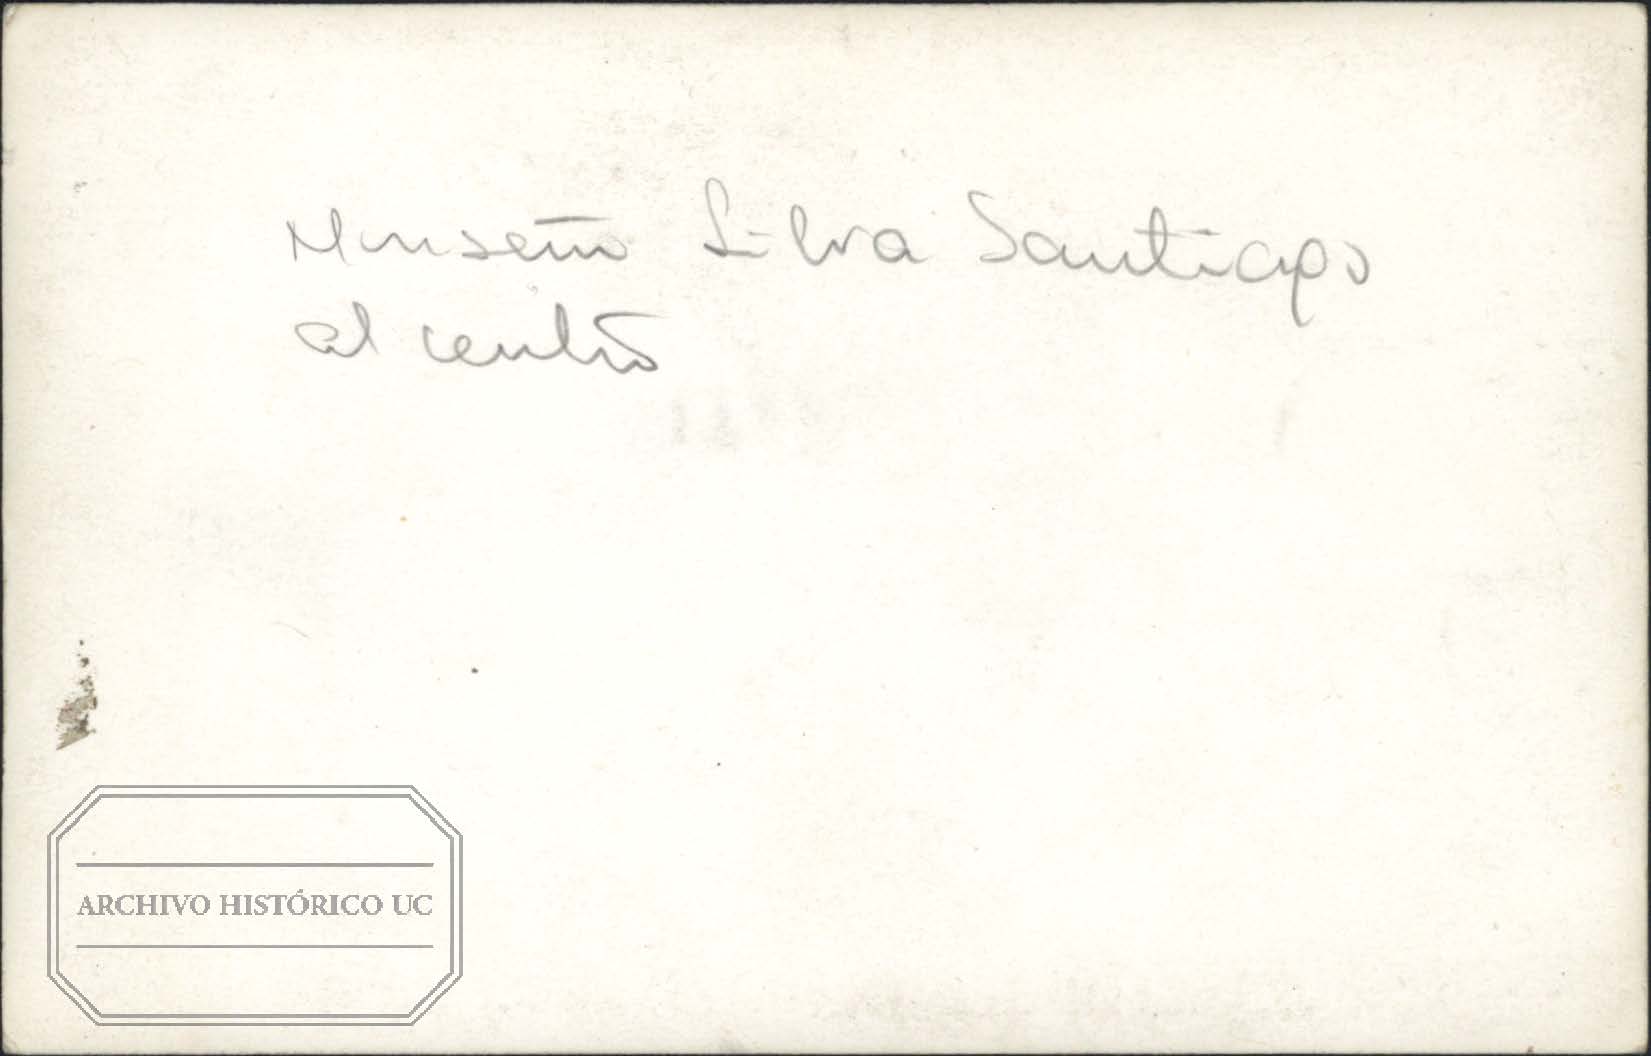 Monseñor Silva Santiago
al centro
ARCHIVO HISTÓRICO UC